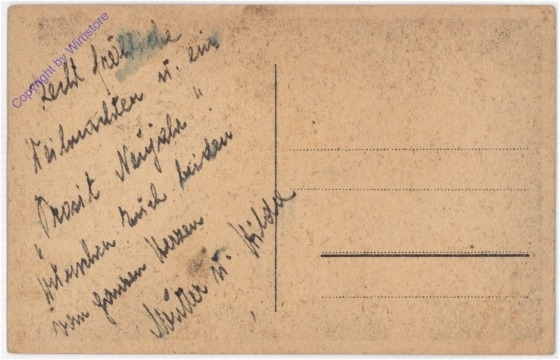 Recht fröhliche
Weihnachten u. ein
Prosit Neujahr "
" wünschen Euch beiden
vom ganzen Herzen
Mutter u. Hilda
Copyright by Wimstore